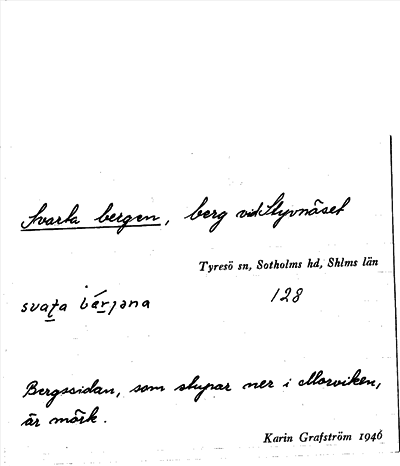 Svarta bergen, berg vid Styvnäset
Tyresö sn, Sotholms hd, Shlms län
svaṭa bærjəna 128
Bergssidan, som stupar ner i Morviken,
är mörk.
Karin Grafström 1946